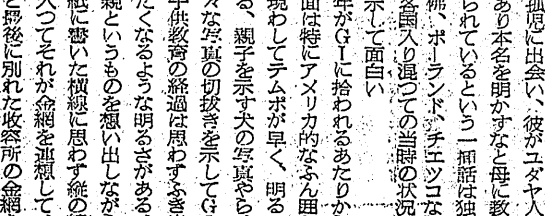 孤児に出会い、彼がユダヤ人
あり本名を明かすなと母に教
られているという一挿話は独
ポーランド、チエツコな
各国入り混つての当時の状況
示して面白い
年がGIに拾われるあたりか
面は特にアメリカ的なふん囲
現わしてテムポが早く、明る
る、親子を示す犬の写真やら
々な写真の切抜きを示してG
子供教育の経過は思わずふき
たくなるような明るさがある
親というものを想い出しなが
紙に書いた横線に思わず縦の
入つてそれが金網を連想して
と最後に別れた収容所の金網